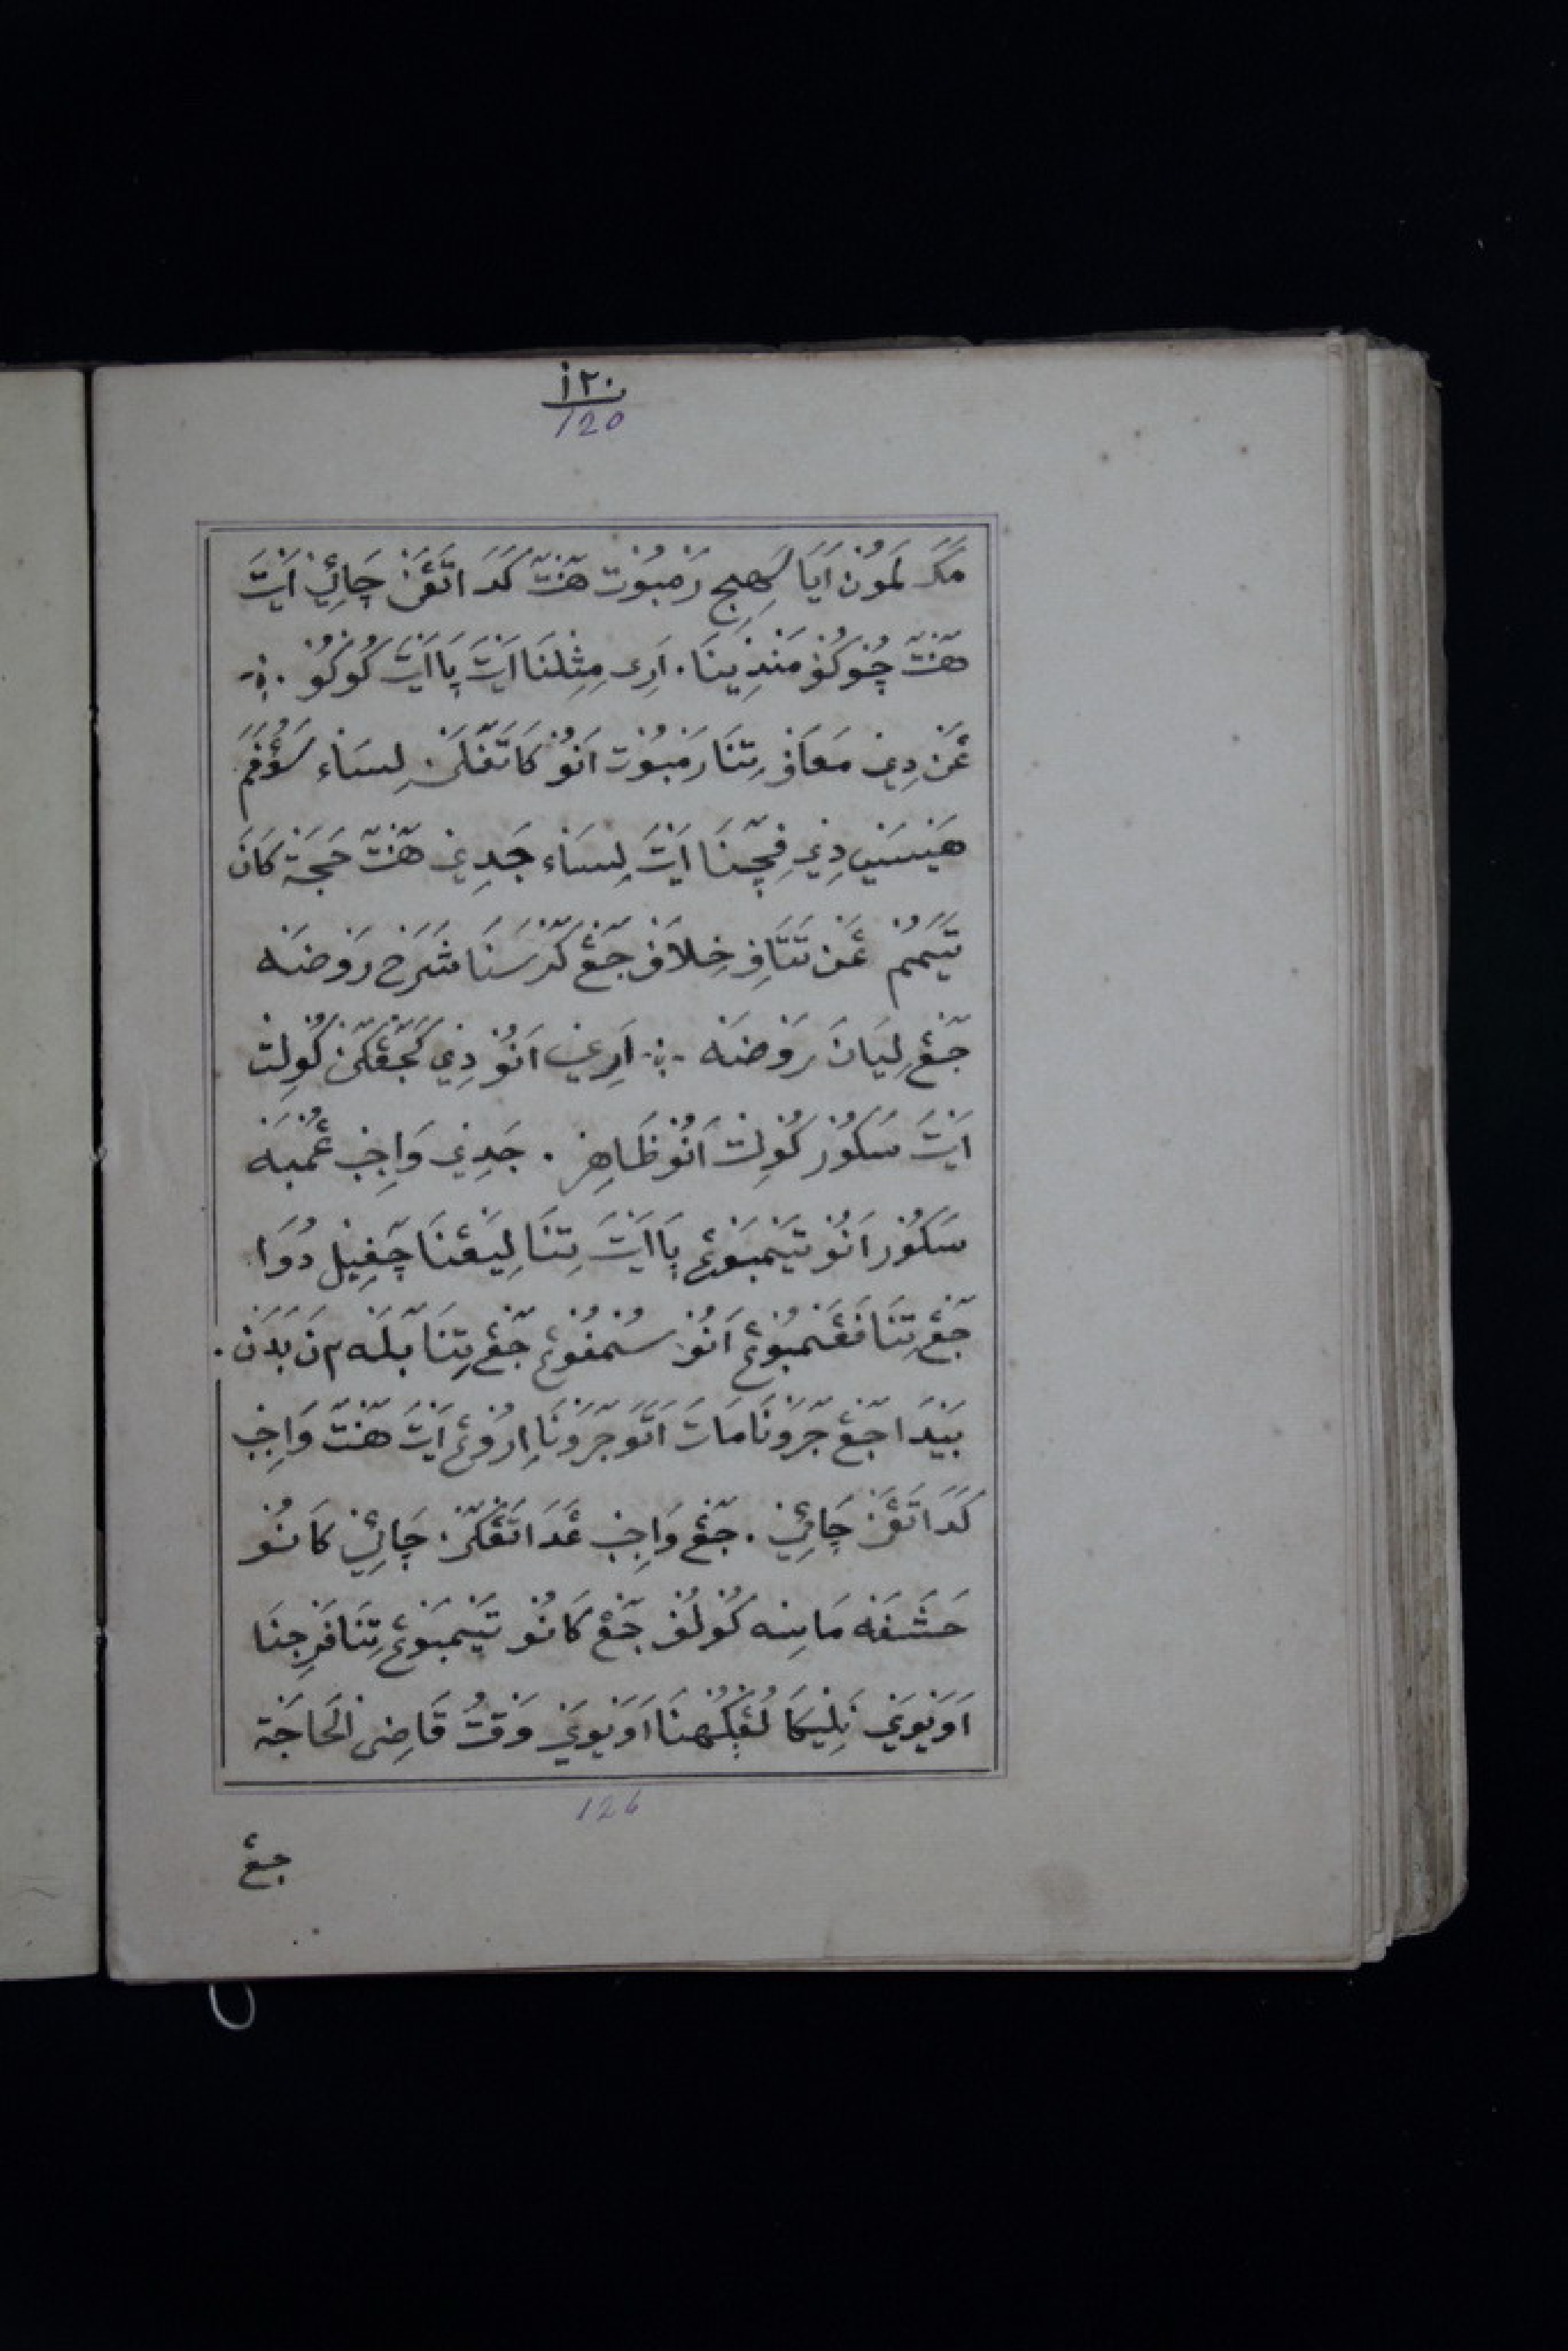 ١٢٠
120
مَكَ لَمُوْن اَيَا لَهِيج رَمْبُوْت هَنْتَ كَدَ اتَّڠَنْ چَائِنْ اَيْتَ
هَنْتَ چُوْكُوْ مَنْذِيْنَا . اَرِى مِثِلْنَا اَيْتَ بَا اَيْتَ كُوْكُوْ .
عَنْ دِيْ مَعَافْ تِنَا رَمْبُوْت اَنُوْ كَاتَّڠْكَنْ لِسَاء
هَيْسَنِيْ دِيْ فِچَّنَا اَيْتَ لِسَاء جَدِيْ هَنْتَ حَجَةْ كَانَ
تَيَمُّمْ عَنْ تَتَّافِ خِلَافْ جَڠْ كَرْسَنَا شَرَحْ رَوْضَه
جَڠْ لِيَانَ رَوْضَه . اَرِيْ اَنُوْ دِيْ كَجَّڠْكَنْ كُوْلِتْ
اَيْتَ سَكُوْر كُوْلِتْ اَنُوْ ظَاهِرْ . جَدِيْ وَاجِبْ عُمْبَه
سَكُوْر اَنُوْ تَيَمْبَوْڠْ بَا اَيْتَ تِنَا لِيَڠْنَا چَڤِيْل دُوَا
جَڠْ تِنَا فَڠَمْبُوْڠْ اَنُوْ سُمْفُوْڠْ جَڠْ تِنَا بَلَه م نَ بَدَنْ .
بَيْدَا جَڠْ جَرَوْنَا مَاتَ اَتَّوَ جَرَوْنَا اِرُوْڠْ اَيْتَ هَنْتَ وَاجِبْ
كَدَ اتَّڠَنْ چَائِنْ . جَڠْ وَاجِبْ عَدَ اتَّڠْكَنْ چَائِنْ كَانُوْ
حَشَفَه مَانِه كُوْلُفْ جَڠْ كَانُوْ تَيَمْبَوْڠْ تِنَا فَرْجِنَا
اَوَيْوَيْ نِلِيْكَا لُڠْكُهْنَا اَوَيْوَيْ وَقْتُ قَاضِىْ الْحَاجَةْ
126
جڠ